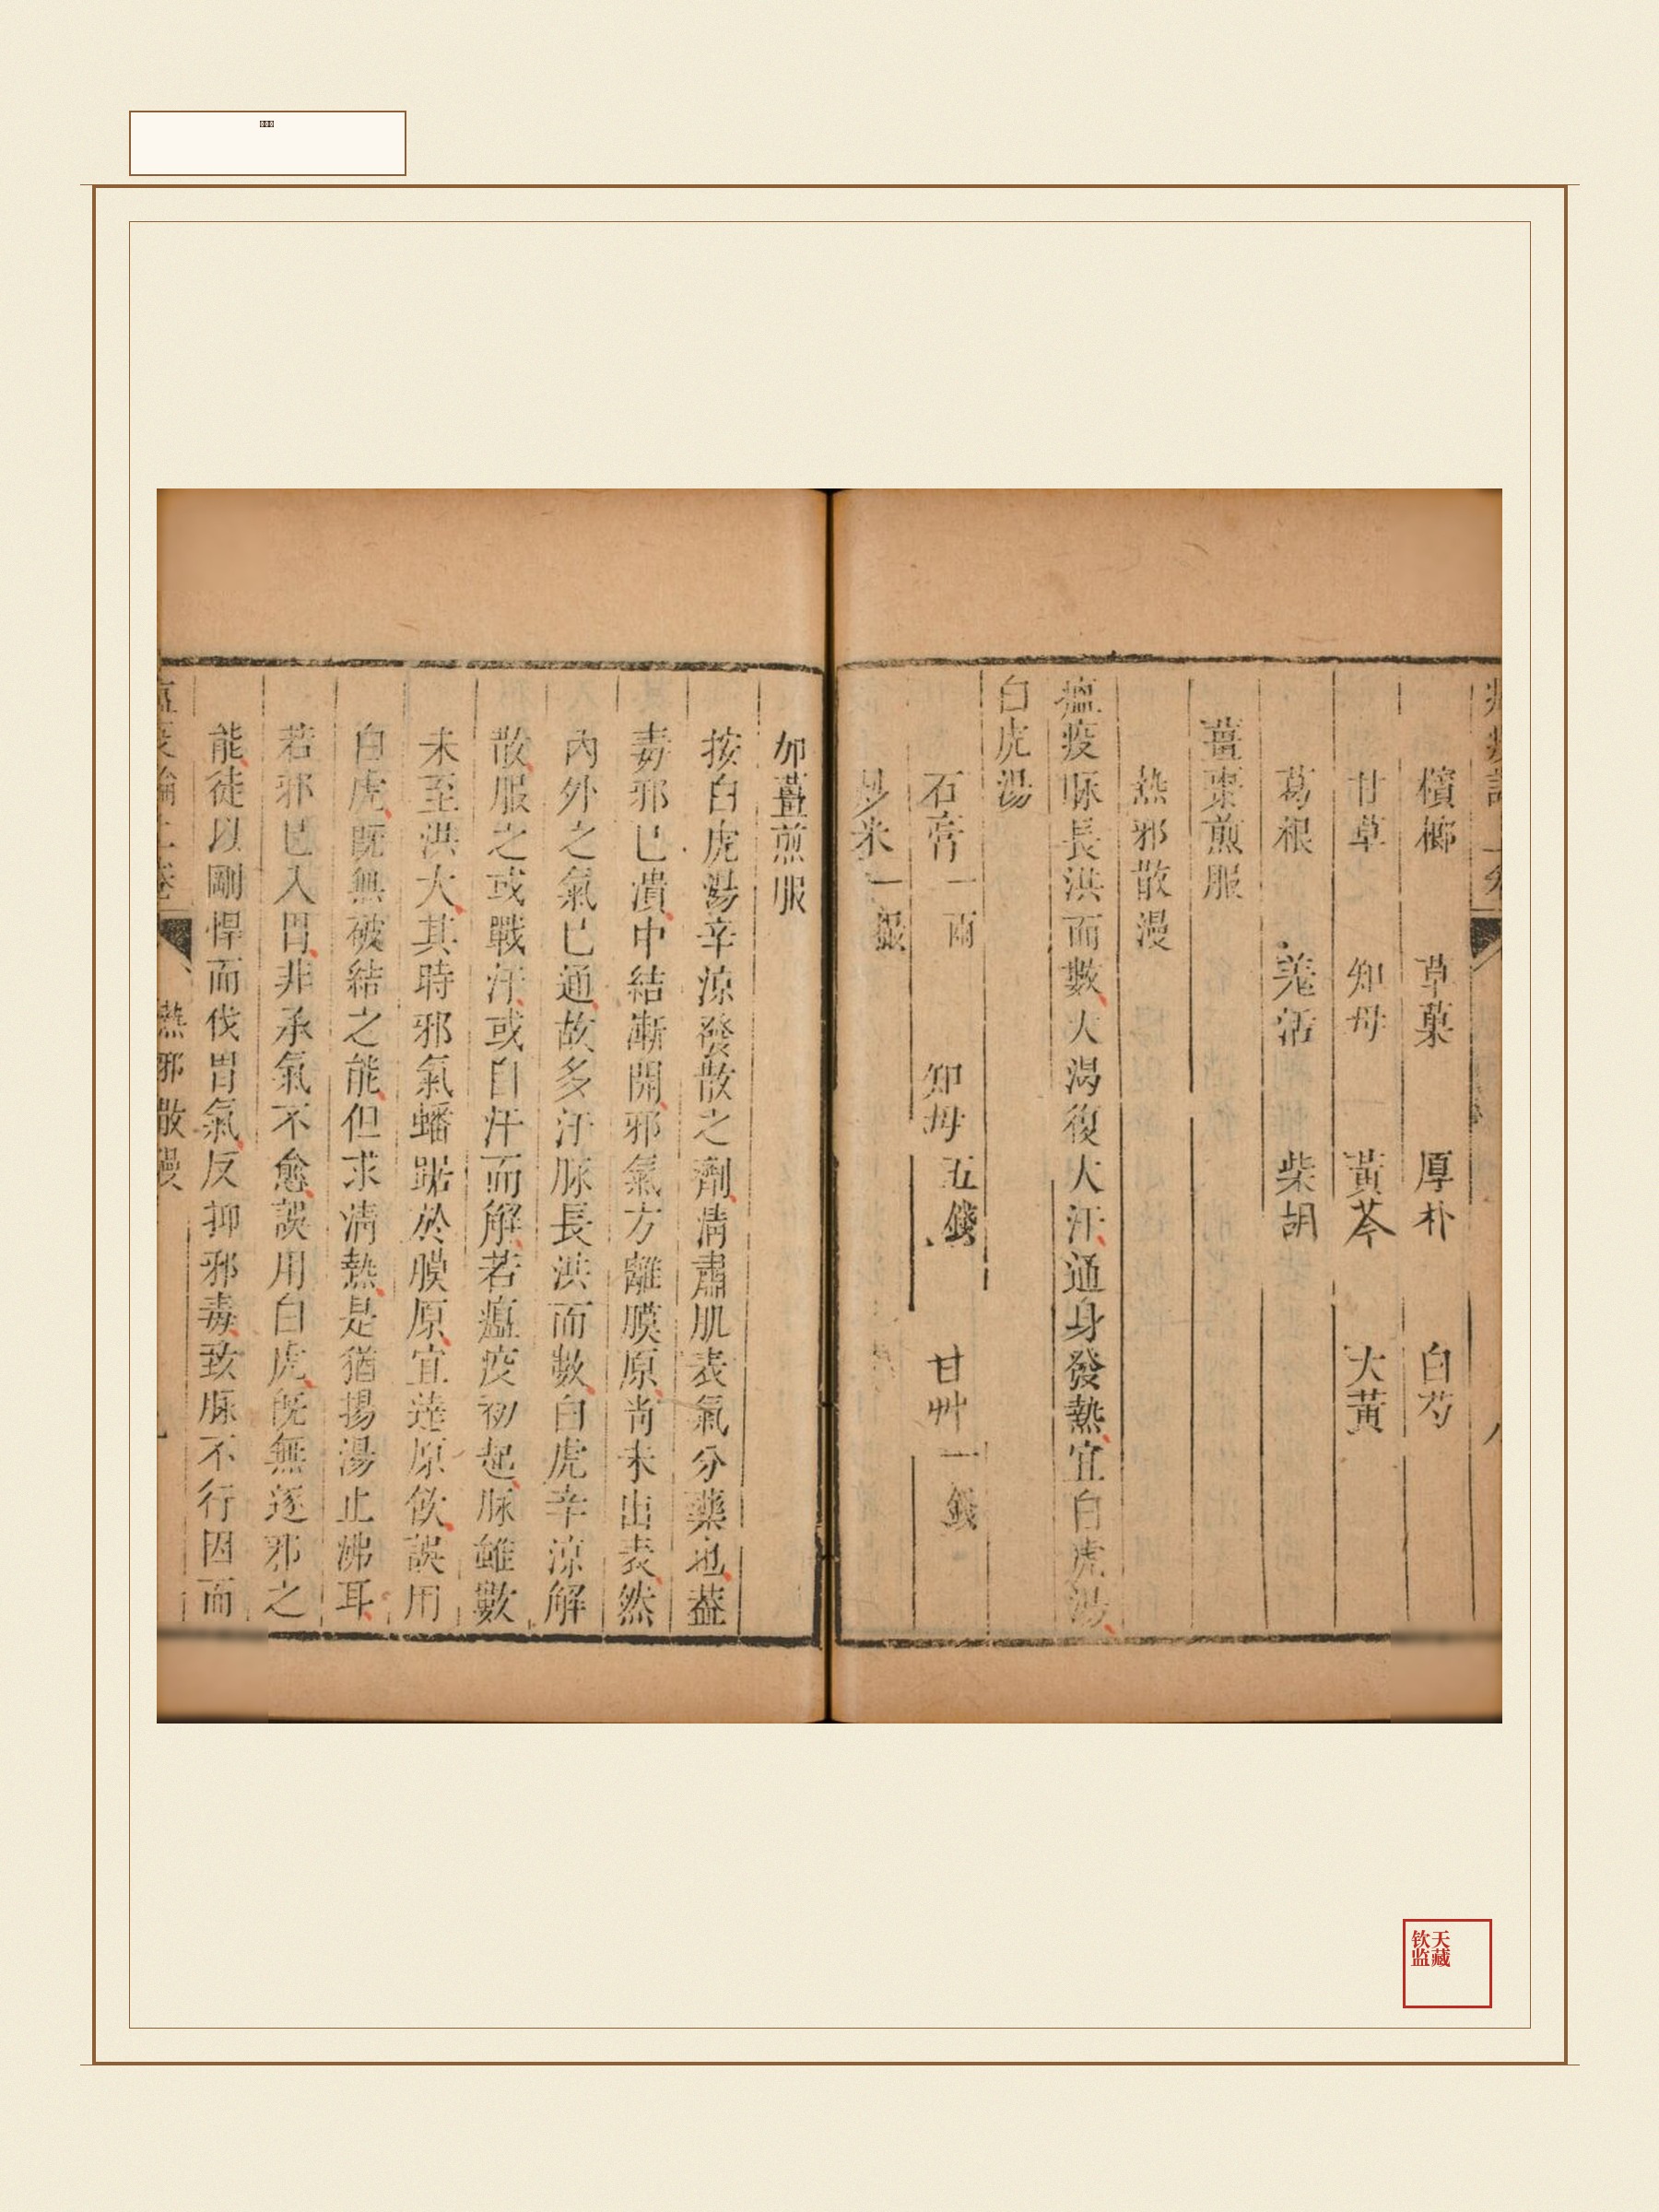 檳榔 草菓 厚朴 白芍
甘草 知母 黃芩 大黃
葛根 羗活 柴胡
薑棗煎服
熱邪散漫
瘟疫脉長洪而數大渴復大汗通身發熱宜白虎湯
白虎湯
石膏一兩 知母五錢 甘艸一錢
炒米一撮
加薑煎服
按白虎湯辛涼發散之劑清肅肌表氣分藥也蓋
毒邪已潰中結漸開邪氣方離膜原尚未出表然
內外之氣已通故多汗脉長洪而數白虎辛涼解
散服之或戰汗或自汗而解若瘟疫初起脉雖數
未至洪大其時邪氣蟠踞於膜原宜達原飲誤用
白虎既無破結之能但求清熱是猶揚湯止沸耳
若邪已入胃非承氣不愈誤用白虎既無逐邪之
能徒以剛悍而伐胃氣反抑邪毒致脉不行因而
熱邪散漫
天藏
钦监